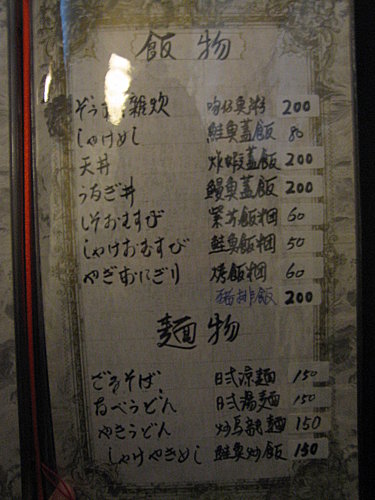 飯物
雜炊 吻仔魚粥 200
しゃけめし 鮭魚蓋飯 80
天丼 炸蝦蓋飯 200
うなぎ丼 鰻魚蓋飯 200
しそおむすび 紫蘇飯糰 60
しゃけおむすび 鮭魚飯糰 50
やきおにぎり 烤飯糰 60
豬排飯 200
麵物
日式涼麵 150
なべうどん 日式湯麵 150
やきうどん 炒烏龍麵 150
しゃけやきめし 鮭魚炒飯 150